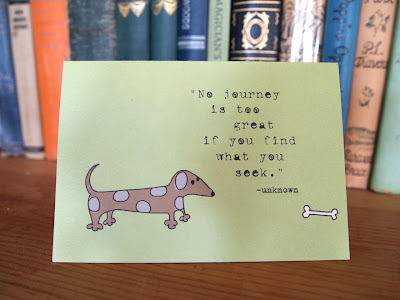 "No journey
is too
great
if you find
what you
seek."
-unknown
MAGICIAN'S
P.L.
Travers